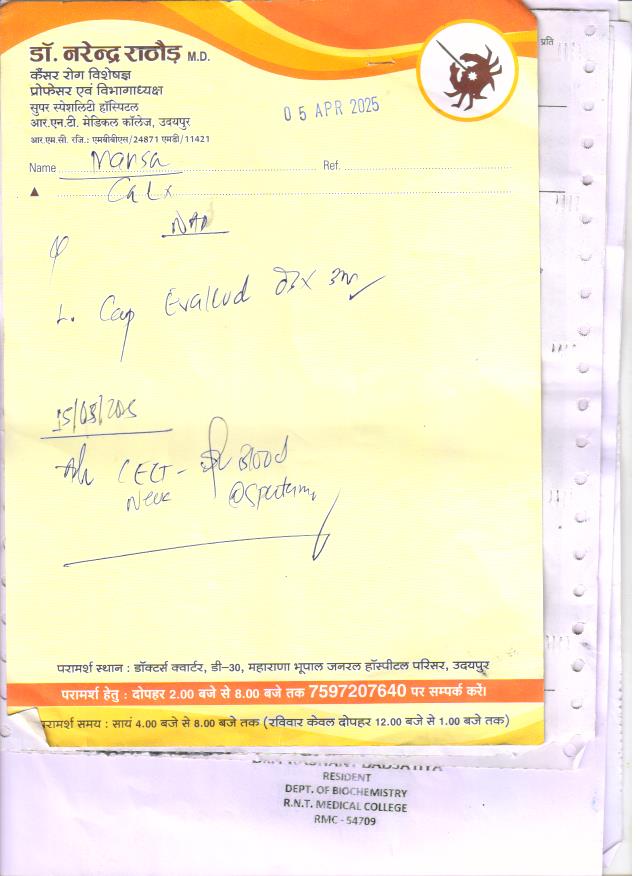 डॉ. नरेन्द्र राठौड़ M.D.
कैंसर रोग विशेषज्ञ
प्रोफेसर एवं विभागाध्यक्ष
सुपर स्पेशलिटी हॉस्पिटल
आर.एन.टी. मेडिकल कॉलेज, उदयपुर
आर.एम.सी. रजि.: एमबीबीएस/24871 एमडी/11421
प्रति
05 APR 2025
Name Mansa Ref.
Ca Lx
NAD
1. Cap
15/03/2025
Adv CECT - Blood
Neck @ Sputum
परामर्श स्थान : डॉक्टर्स क्वार्टर, डी-30, महाराणा भूपाल जनरल हॉस्पीटल परिसर, उदयपुर
परामर्श हेतु : दोपहर 2.00 बजे से 8.00 बजे तक 7597207640 पर सम्पर्क करें।
परामर्श समय : सायं 4.00 बजे से 8.00 बजे तक (रविवार केवल दोपहर 12.00 बजे से 1.00 बजे तक)
RESIDENT
DEPT. OF BIOCHEMISTRY
R.N.T. MEDICAL COLLEGE
RMC - 54709